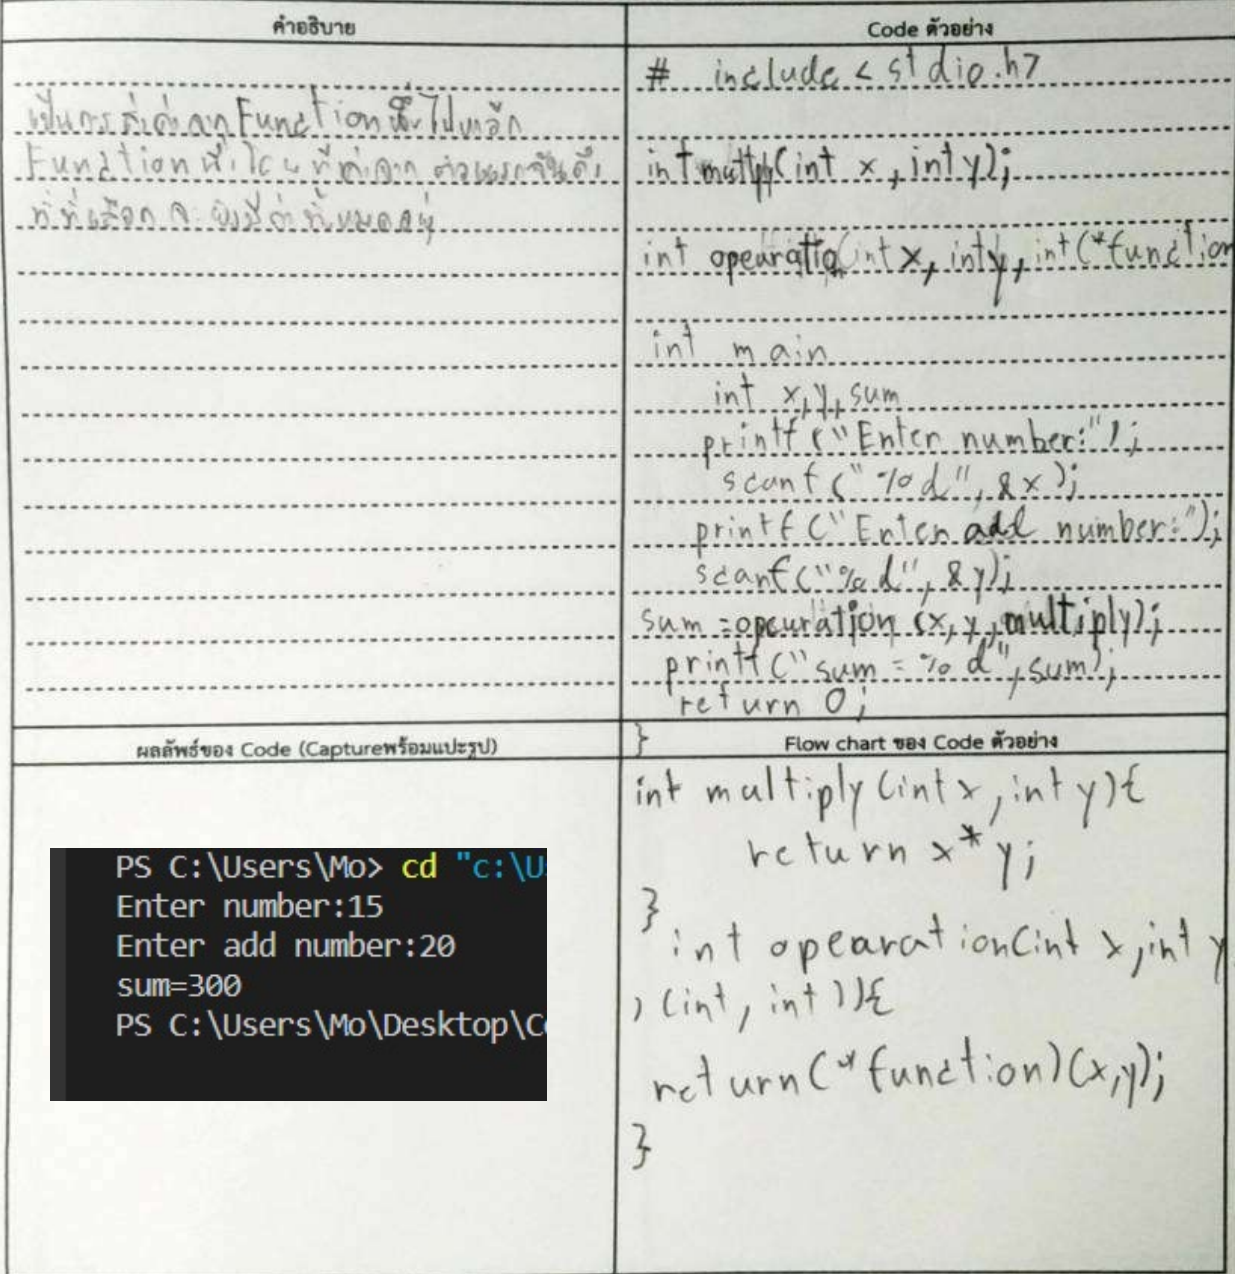 คำอธิบาย
เป็นการส่งค่าจาก Function หนึ่งไปหาอีก
Function
Code ตัวอย่าง
# include < stdio.h>
int multply(int x, int y);
int opeuratio(int x, int y, int (*function
int main
int x, y, sum
printf ("Enter number:");
scanf ("%d", &x);
printf ("Enter add number:");
scanf ("%d", &y);
sum = opeuration (x, y, multiply);
printf ("sum = %d", sum);
return 0;
}
ผลลัพธ์ของ Code (Captureพร้อมแปะรูป)
PS C:\Users\Mo> cd "c:\U
Enter number:15
Enter add number:20
sum=300
PS C:\Users\Mo\Desktop\C
Flow chart ของ Code ตัวอย่าง
int multiply (int x, int y){
return x* y;
}
int opearation(int x, int y
) (int, int )){
return (*function)(x,y);
}